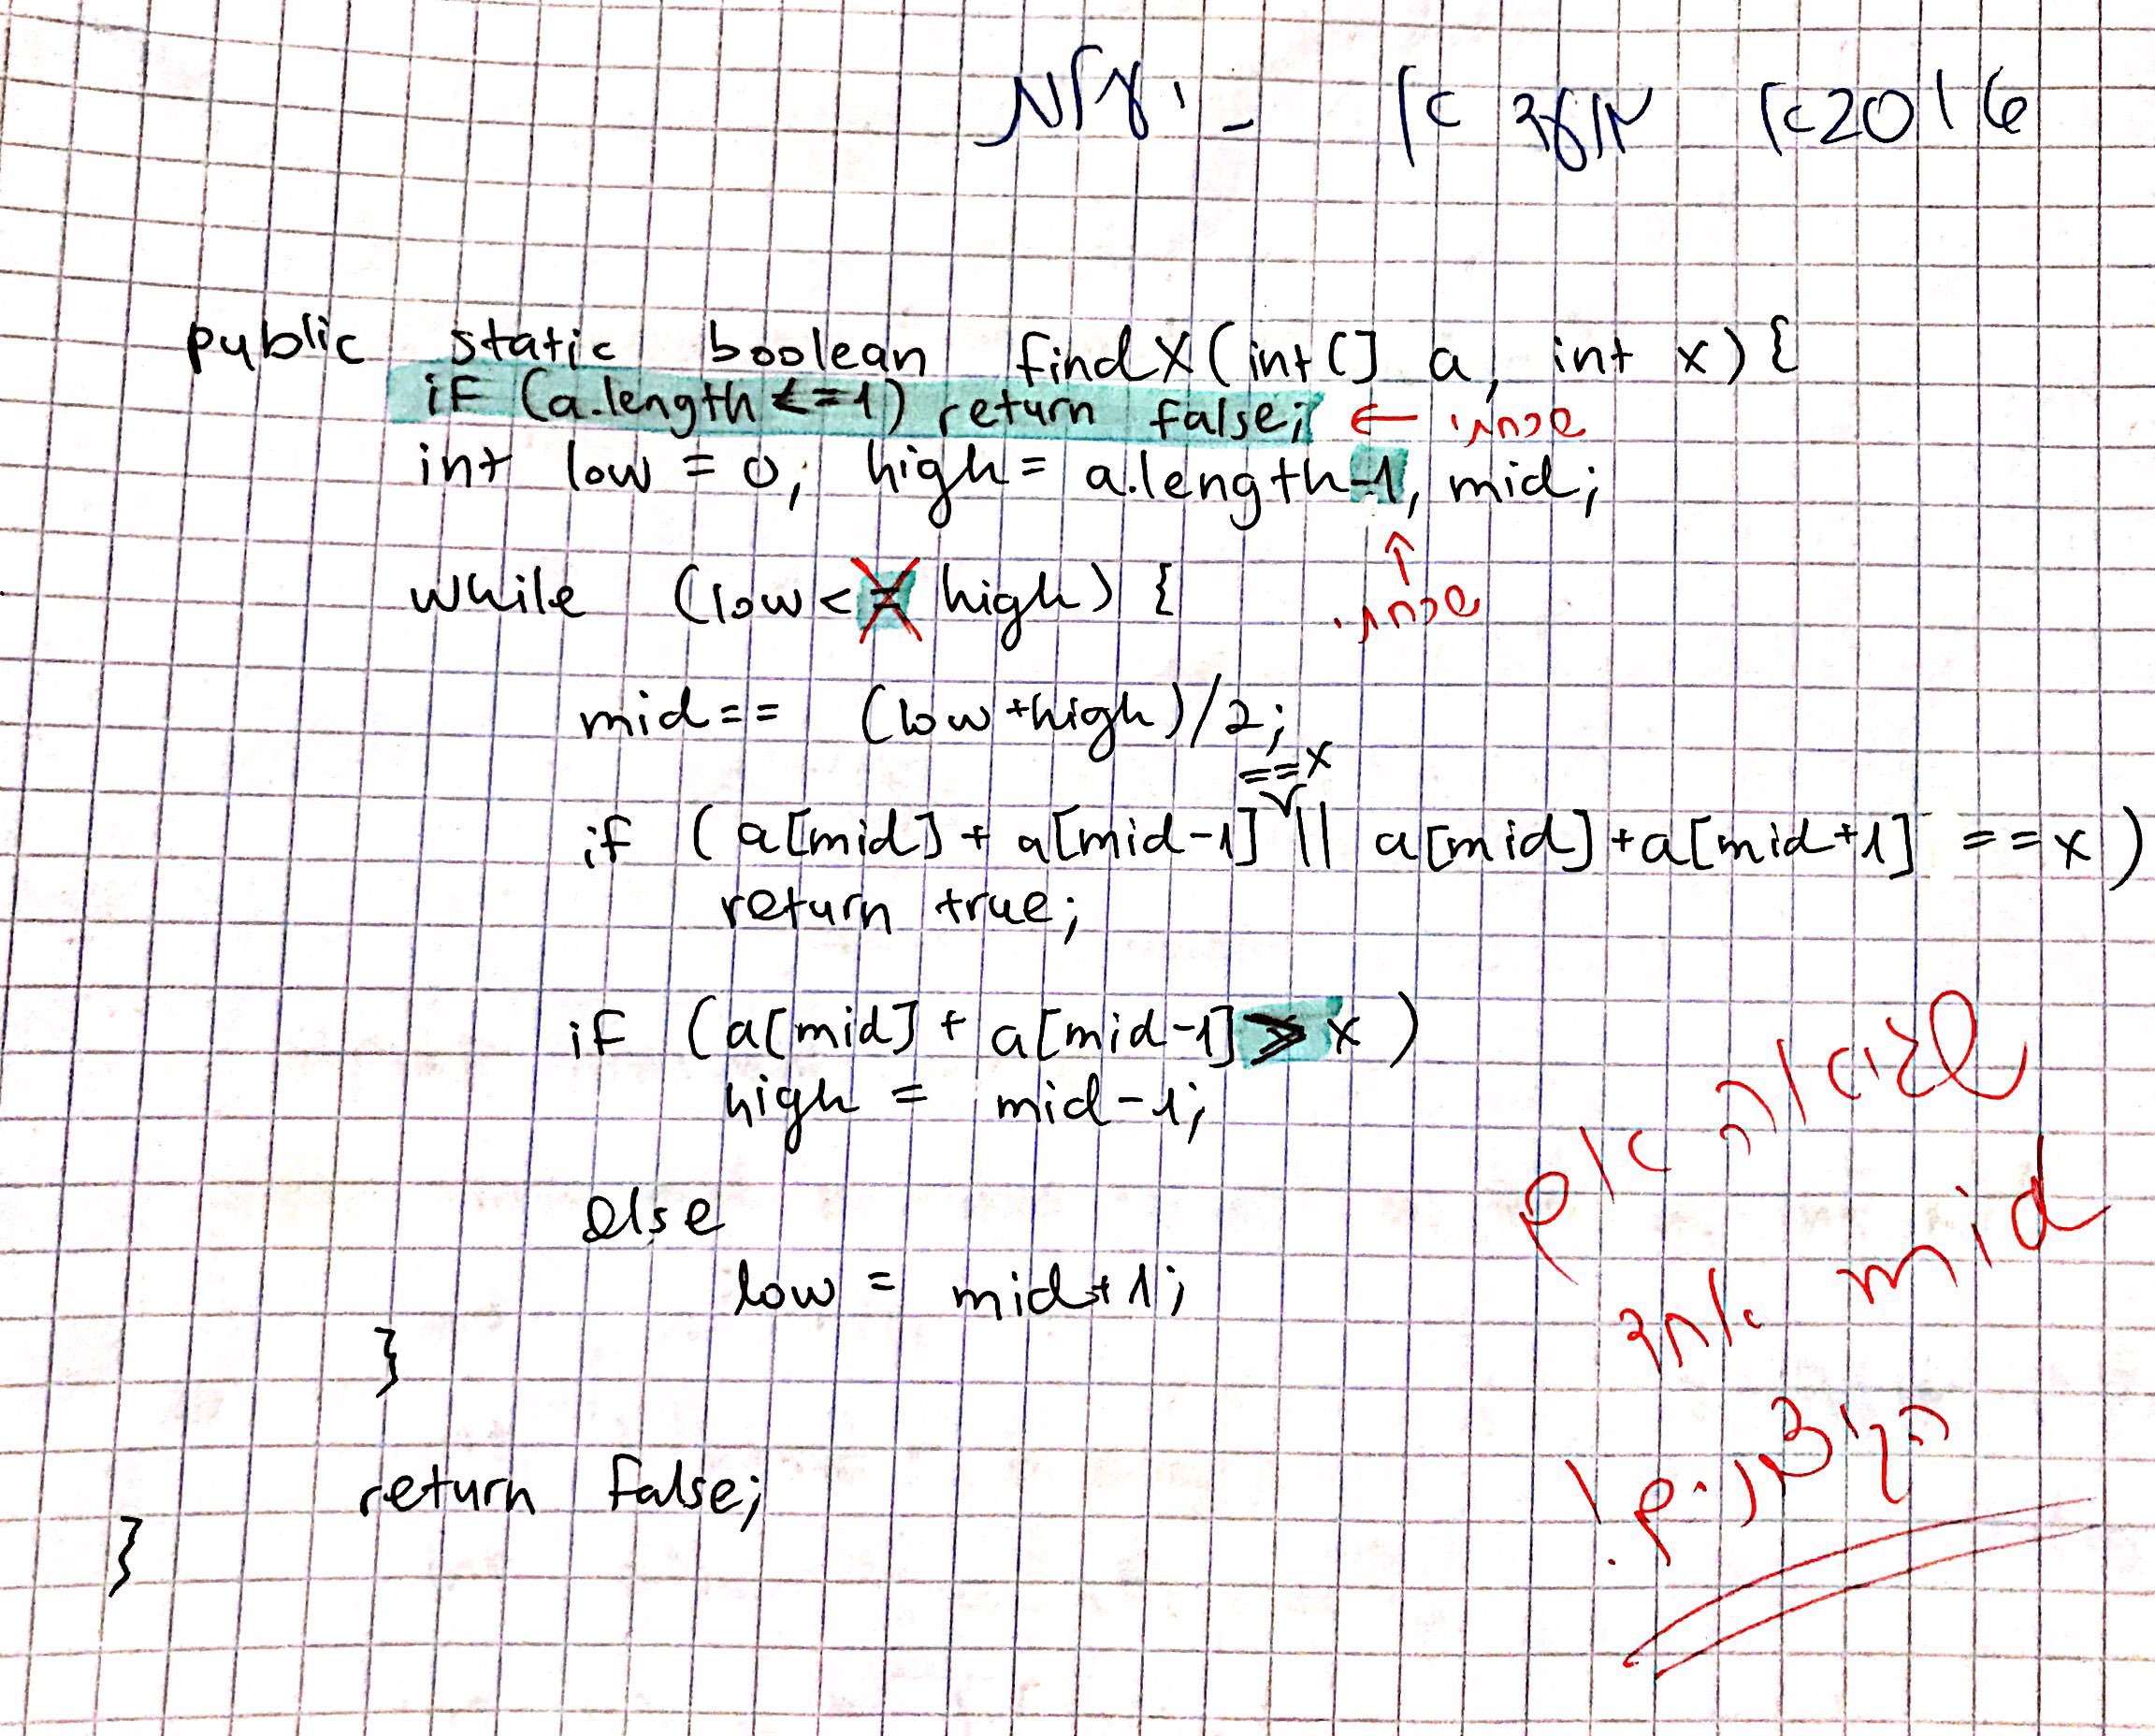 2016א מועד א -
public static boolean findX(int[] a, int x){
if (a.length <=1) return false; ← שכחתי
int low = 0; high = a.length-1, mid;
↑
while (low<= high) { שכחתי.
mid == (low+high)/2;
==x
if (a[mid] + a[mid-1] || a[mid]+a[mid+1] ==x)
return true;
if (a[mid] + a[mid-1] > x)
high = mid-1;
else
low = mid+1;
}
return false;
}
שגיאה אם
mid אחד
הקיצונים!